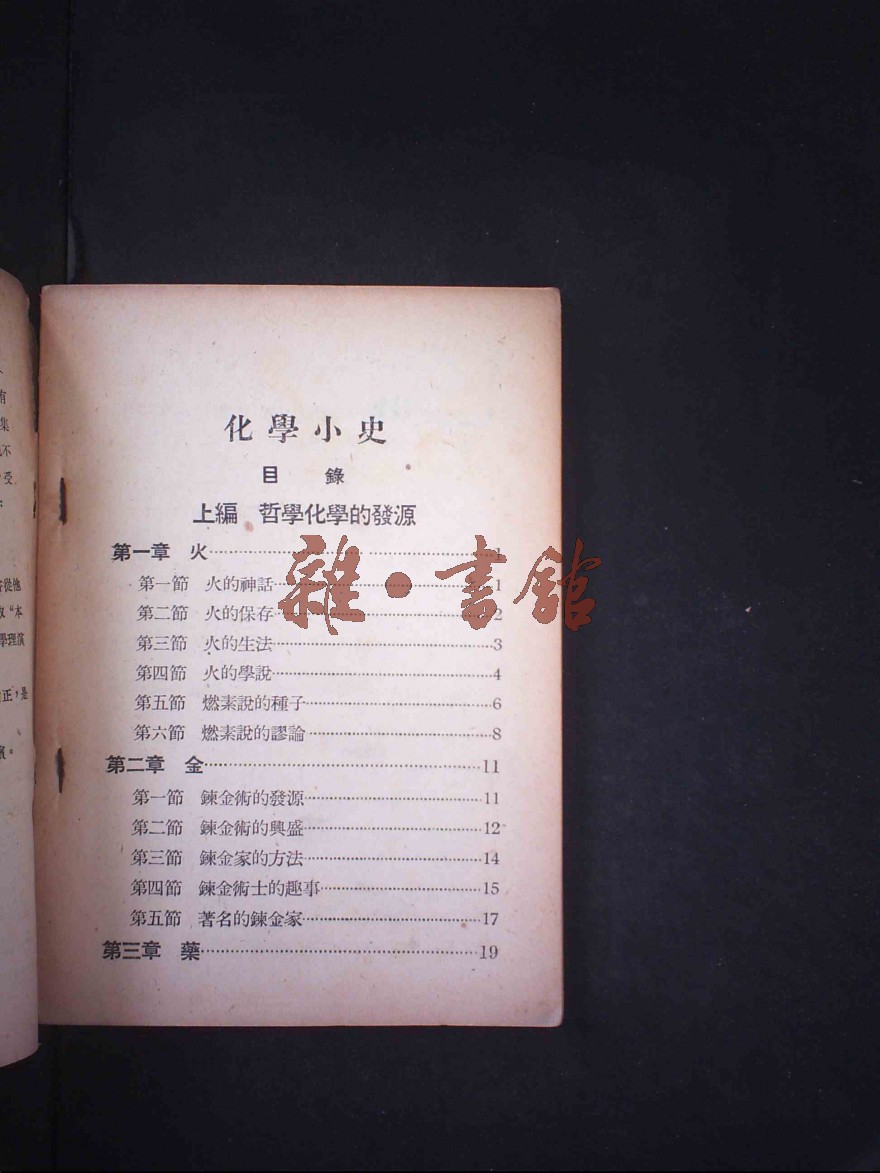 化學小史
目　錄
上編　哲學化學的發源
第一章　火……1
第一節　火的神話……1
第二節　火的保存……2
第三節　火的生法……3
第四節　火的學說……4
第五節　燃素說的種子……6
第六節　燃素說的謬論……8
第二章　金……11
第一節　鍊金術的發源……11
第二節　鍊金術的興盛……12
第三節　鍊金家的方法……14
第四節　鍊金術士的趣事……15
第五節　著名的鍊金家……17
第三章　藥……19
雜·書館
有
集
不
受
從他
“本
學理演
正，是